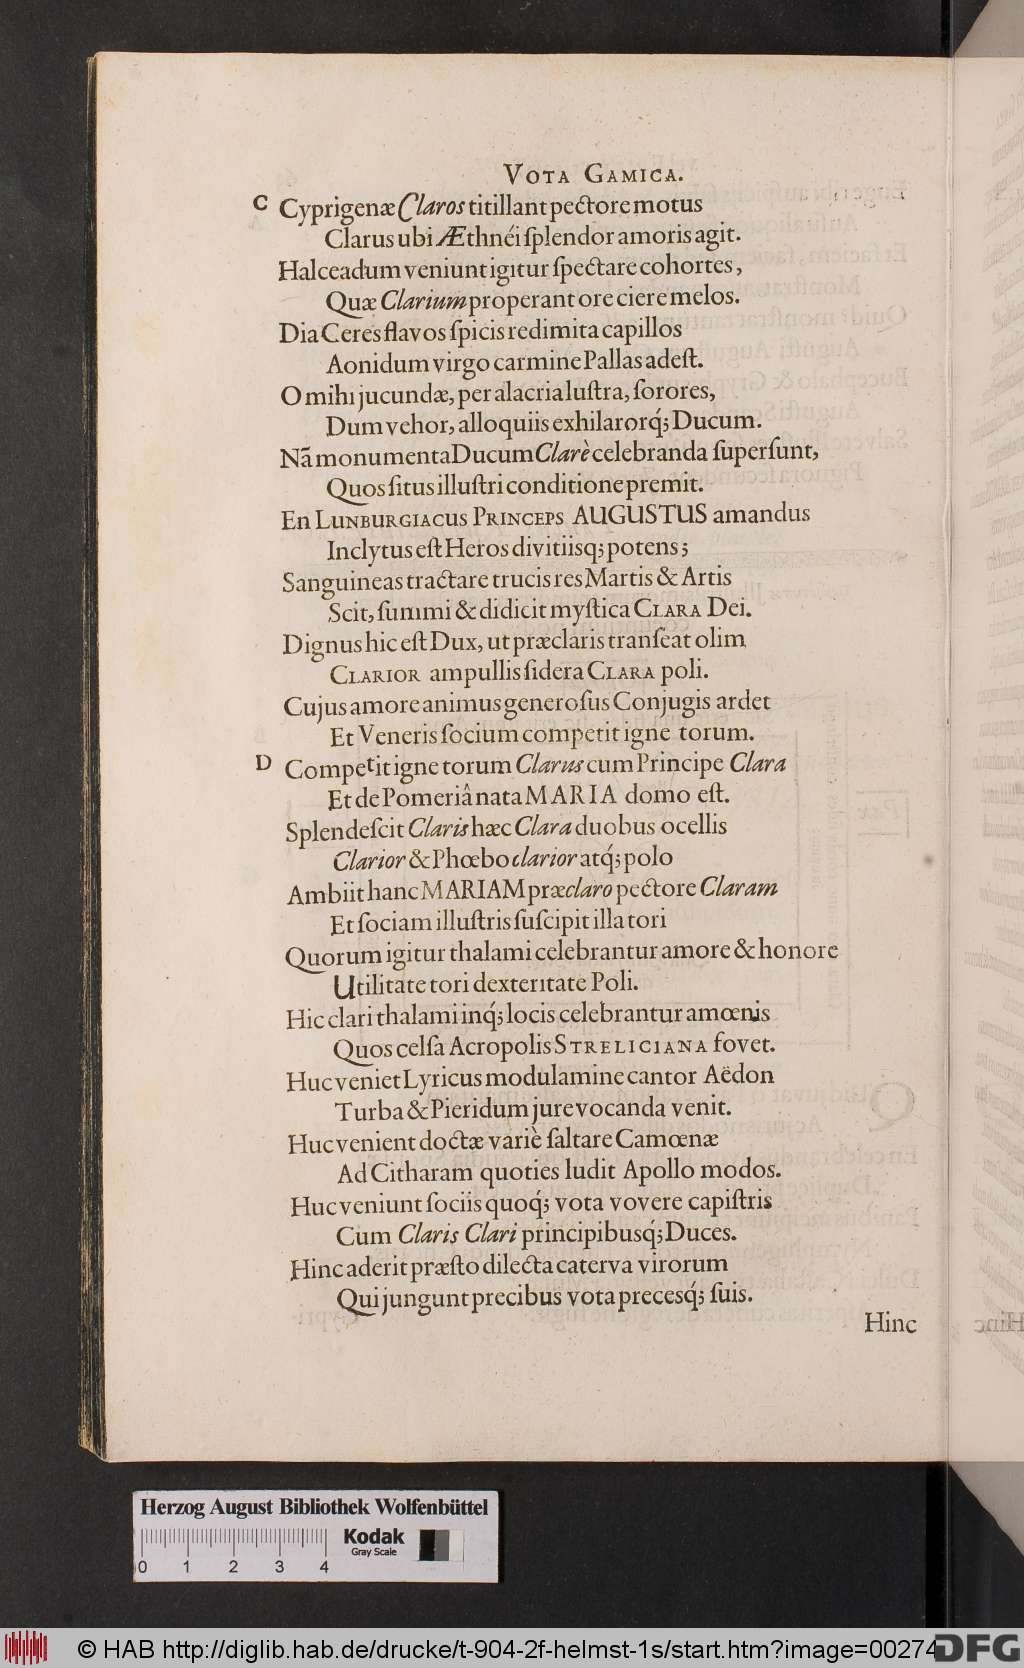 VOTA GAMICA.
C Cyprigenæ Claros titillant pectore motus
Clarus ubi Æthnéi ſplendor amoris agit.
Halceadum veniunt igitur ſpectare cohortes,
Quæ Clarium properant ore ciere melos.
Dia Ceres flavos ſpicis redimita capillos
Aonidum virgo carmine Pallas adeſt.
O mihi jucundæ, per alacria luſtra, ſorores,
Dum vehor, alloquiis exhilarorq́; Ducum.
Nã monumenta Ducum Clarè celebranda ſuperſunt,
Quos ſitus illuſtri conditione premit.
En LUNBURGIACUS PRINCEPS AUGUSTUS amandus
Inclytus eſt Heros divitiisq; potens;
Sanguineas tractare trucis res Martis & Artis
Scit, ſummi & didicit myſtica CLARA Dei.
Dignus hic eſt Dux, ut præclaris tranſeat olim
CLARIOR ampullis ſidera CLARA poli.
Cujus amore animus generoſus Conjugis ardet
Et Veneris ſocium competit igne torum.
D Competit igne torum Clarus cum Principe Clara
Et de Pomeriâ nata MARIA domo eſt.
Splendeſcit Claris hæc Clara duobus ocellis
Clarior & Phœbo clarior atq́; polo
Ambiit hanc MARIAM præclaro pectore Claram
Et ſociam illuſtris ſuſcipit illa tori
Quorum igitur thalami celebrantur amore & honore
Utilitate tori dexteritate Poli.
Hic clari thalami inq́; locis celebrantur amœnis
Quos celſa Acropolis STRELICIANA fovet.
Huc veniet Lyricus modulamine cantor Aëdon
Turba & Pieridum jure vocanda venit.
Huc venient doctæ variè ſaltare Camœnæ
Ad Citharam quoties ludit Apollo modos.
Huc veniunt ſociis quoq́; vota vovere capiſtris
Cum Claris Clari principibusq́; Duces.
Hinc aderit præſto dilecta caterva virorum
Qui jungunt precibus vota precesq́; ſuis.
Hinc
Herzog August Bibliothek Wolfenbüttel
Kodak
Gray Scale
0 1 2 3 4
© HAB http://diglib.hab.de/drucke/t-904-2f-helmst-1s/start.htm?image=00274
DFG